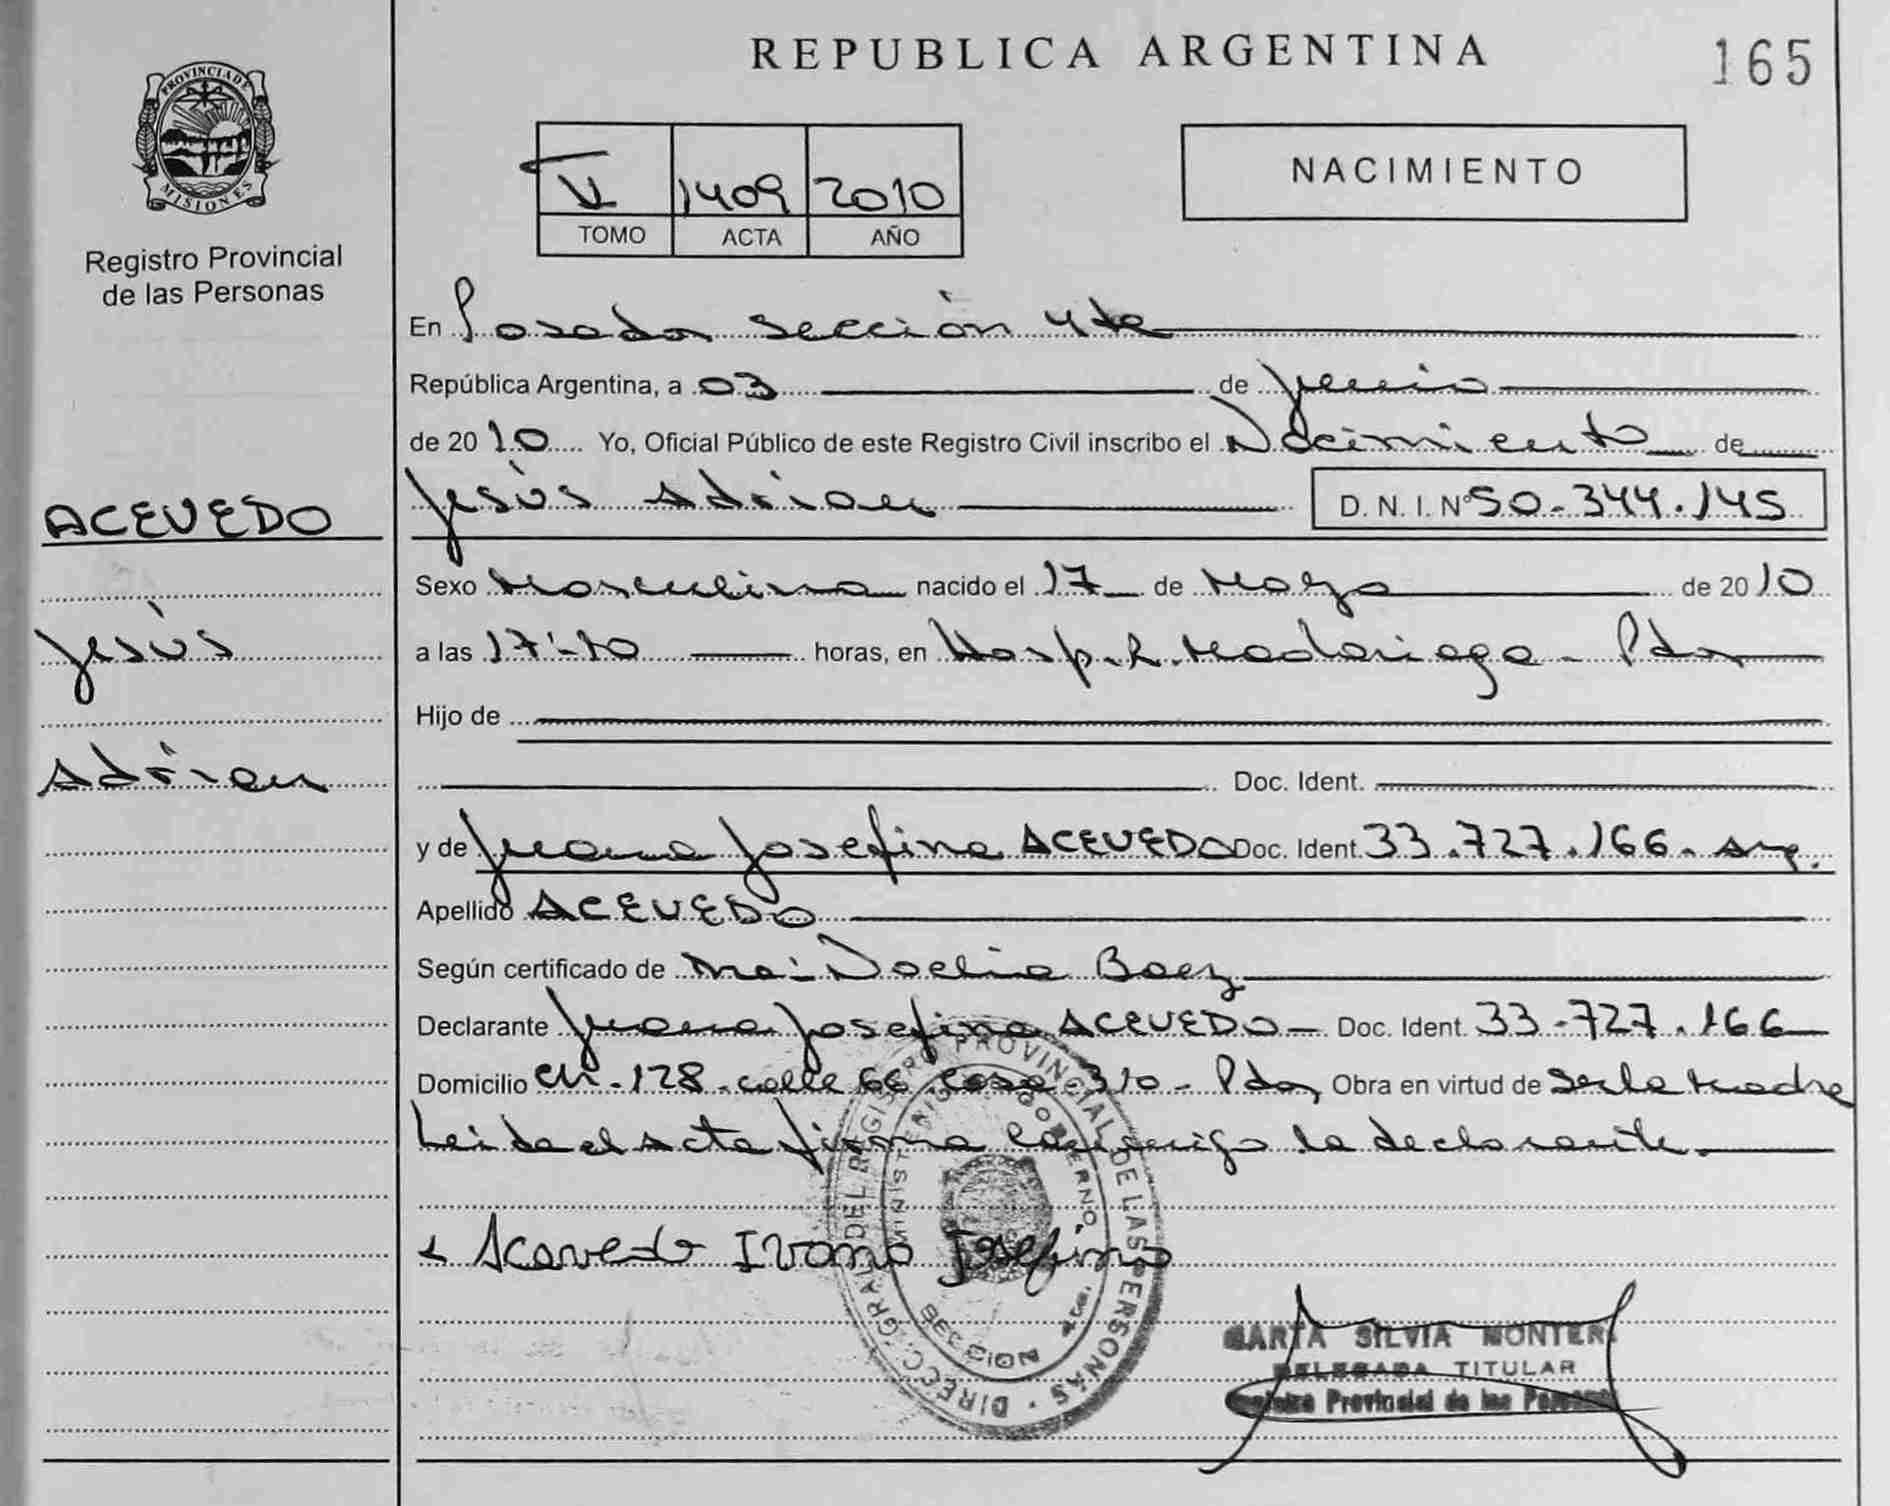 REPUBLICA ARGENTINA
165
PROVINCIA DE
MISIONES
Registro Provincial
de las Personas
V 1409 2010
TOMO ACTA AÑO
NACIMIENTO
En Posadas sección 4ta
República Argentina, a 03 de Junio
de 2010 Yo, Oficial Público de este Registro Civil inscribo el Nacimiento de
Jesús Adrian D. N. I. Nº 50.344.145
ACEVEDO
Jesús
Adrian
Sexo Masculino nacido el 17 de Mayo de 2010
a las 17:10 horas, en Hosp. R. Madariaga - Pdas
Hijo de
Doc. Ident.
y de Juana Josefina ACEVEDO Doc. Ident. 33.727.166 - Arg.
Apellido ACEVEDO
Según certificado de Noelia Baez
Declarante Juana Josefina ACEVEDO - Doc. Ident. 33-727.166
Domicilio CH. 128 - calle 66 casa 310 - Pdas Obra en virtud de Ser la Madre
Leida el Acta firma conmigo la declarante.
Acevedo Ivana Josefina
DIRECC. GRAL. DEL REGISTRO PROVINCIAL DE LAS PERSONAS
MINISTERIO GOBIERNO
SECCION 4ta.
MARTA SILVIA MONTER
DELEGADA TITULAR
Registro Provincial de las Personas